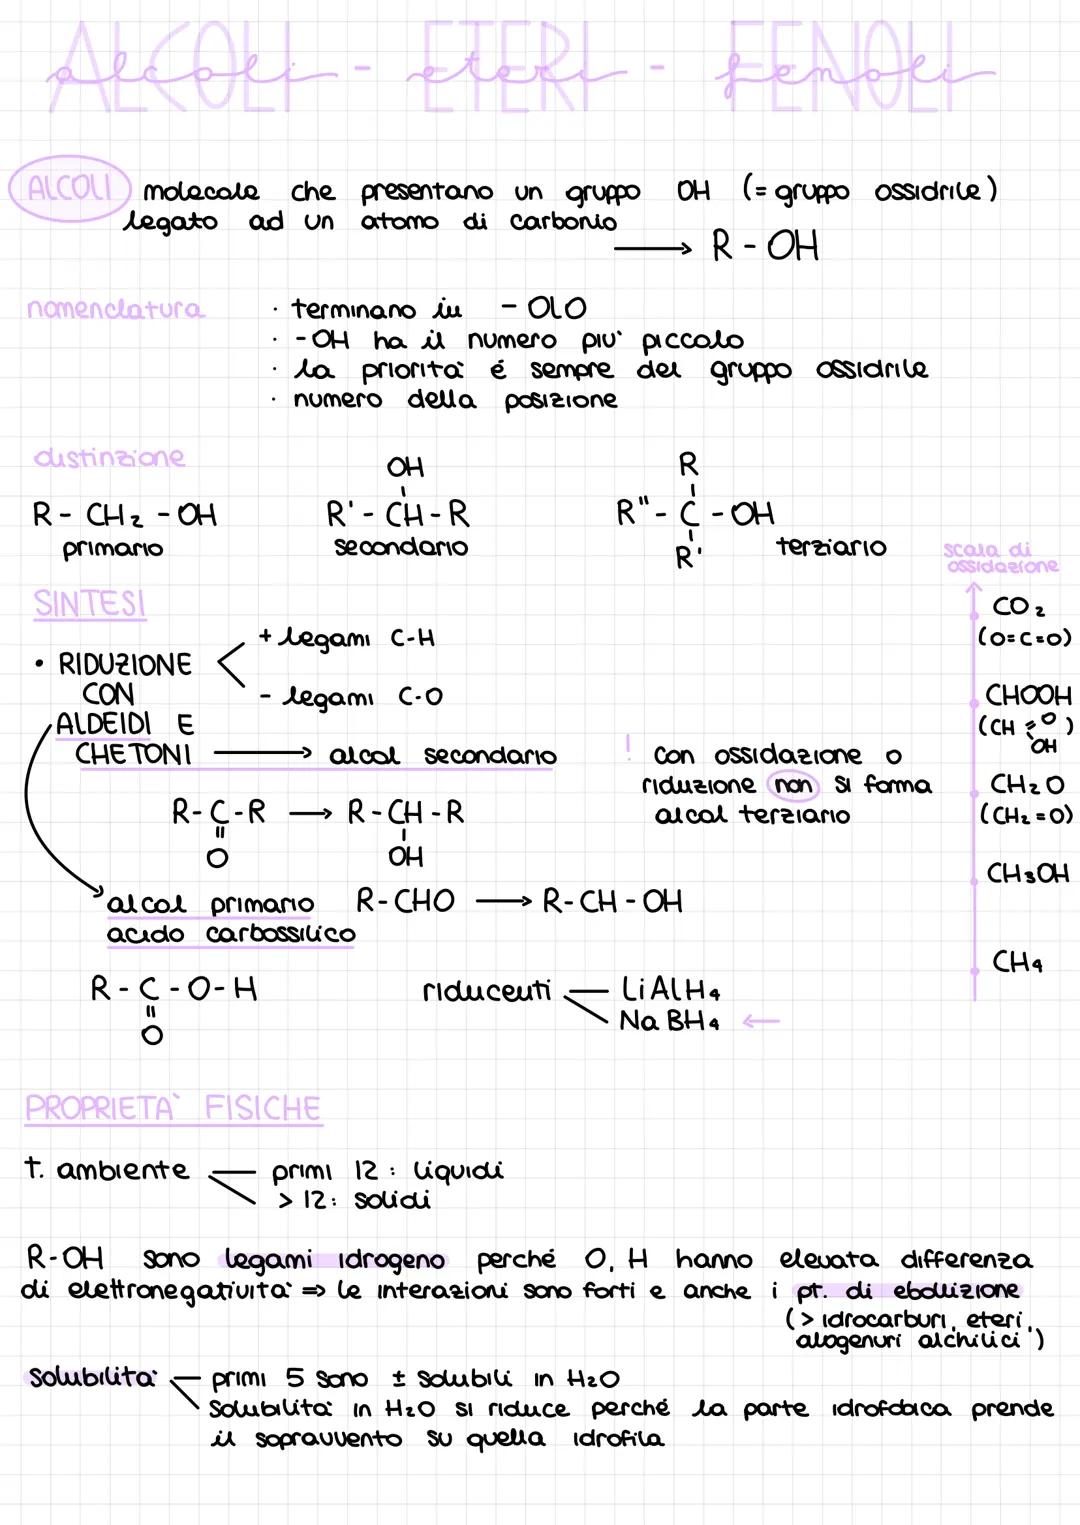 ALCOLI - ETERI - FENOLI
alcoli - eteri - fenoli
ALCOLI molecole che presentano un gruppo OH (= gruppo ossidrile)
legato ad un atomo di carbonio
→ R - OH
nomenclatura · terminano in - OLO
· - OH ha il numero piu' piccolo
· la priorità é sempre del gruppo ossidrile
· numero della posizione
distinzione
OH
R
R - CH2 - OH
R' - CH - R
R" - C - OH
primario
secondario
R'
terziario
scala di
ossidazione
SINTESI
CO2
(O=C=O)
+ legami C-H
• RIDUZIONE
CON
- legami C-O
CHOOH
ALDEIDI E
(CH = O)
OH
CHETONI → alcol secondario
! con ossidazione o
riduzione non si forma
alcol terziario
CH2O
(CH2=O)
R - C - R → R - CH - R
O
OH
CH3OH
alcol primario R - CHO → R - CH - OH
acido carbossilico
CH4
R - C - O - H
O
riducenti — LiAlH4
NaBH4 ←
PROPRIETA' FISICHE
t. ambiente — primi 12 : liquidi
> 12: solidi
R-OH sono legami idrogeno perché O, H hanno elevata differenza
di elettronegatività ⇒ le interazioni sono forti e anche i pt. di ebollizione
(> idrocarburi, eteri,
alogenuri alchilici')
solubilità — primi 5 sono ± solubili in H2O
solubilità in H2O si riduce perché la parte idrofobica prende
il sopravvento su quella idrofila